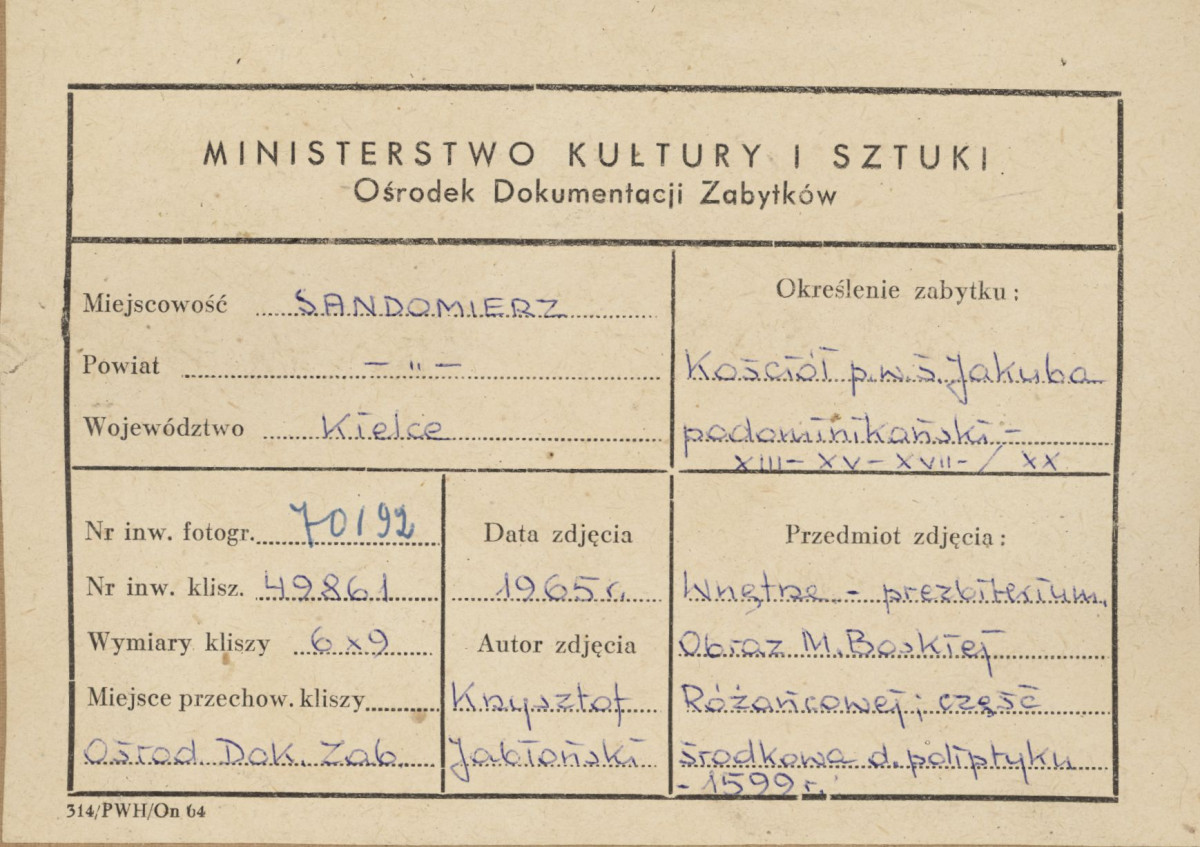 MINISTERSTWO KULTURY I SZTUKI
Ośrodek Dokumentacji Zabytków
Miejscowość SANDOMIERZ
Powiat — " —
Województwo Kielce
Określenie zabytku:
Kościół p.w. ś. Jakuba
podominikański –
XIII – XV – XVII – / XX
Nr inw. fotogr. 70192
Nr inw. klisz. 49861
Wymiary kliszy 6x9
Miejsce przechow. kliszy
Ośrod Dok. Zab
Data zdjęcia
1965 r.
Autor zdjęcia
Krzysztof
Jabłoński
Przedmiot zdjęcia:
Wnętrze – prezbiterium.
Obraz M. Boskiej
Różańcowej; część
środkowa d. poliptyku
- 1599 r.
314/PWH/On 64